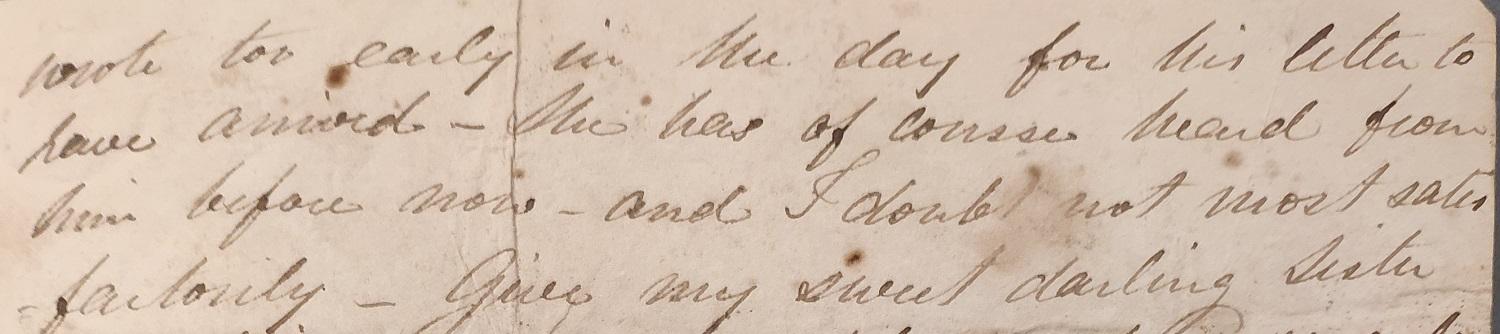 wrote too early in the day for his letter to
have arrived - She has of course heard from
him before now - and I doubt not most satis
-factorily - Give my sweet darling Sister